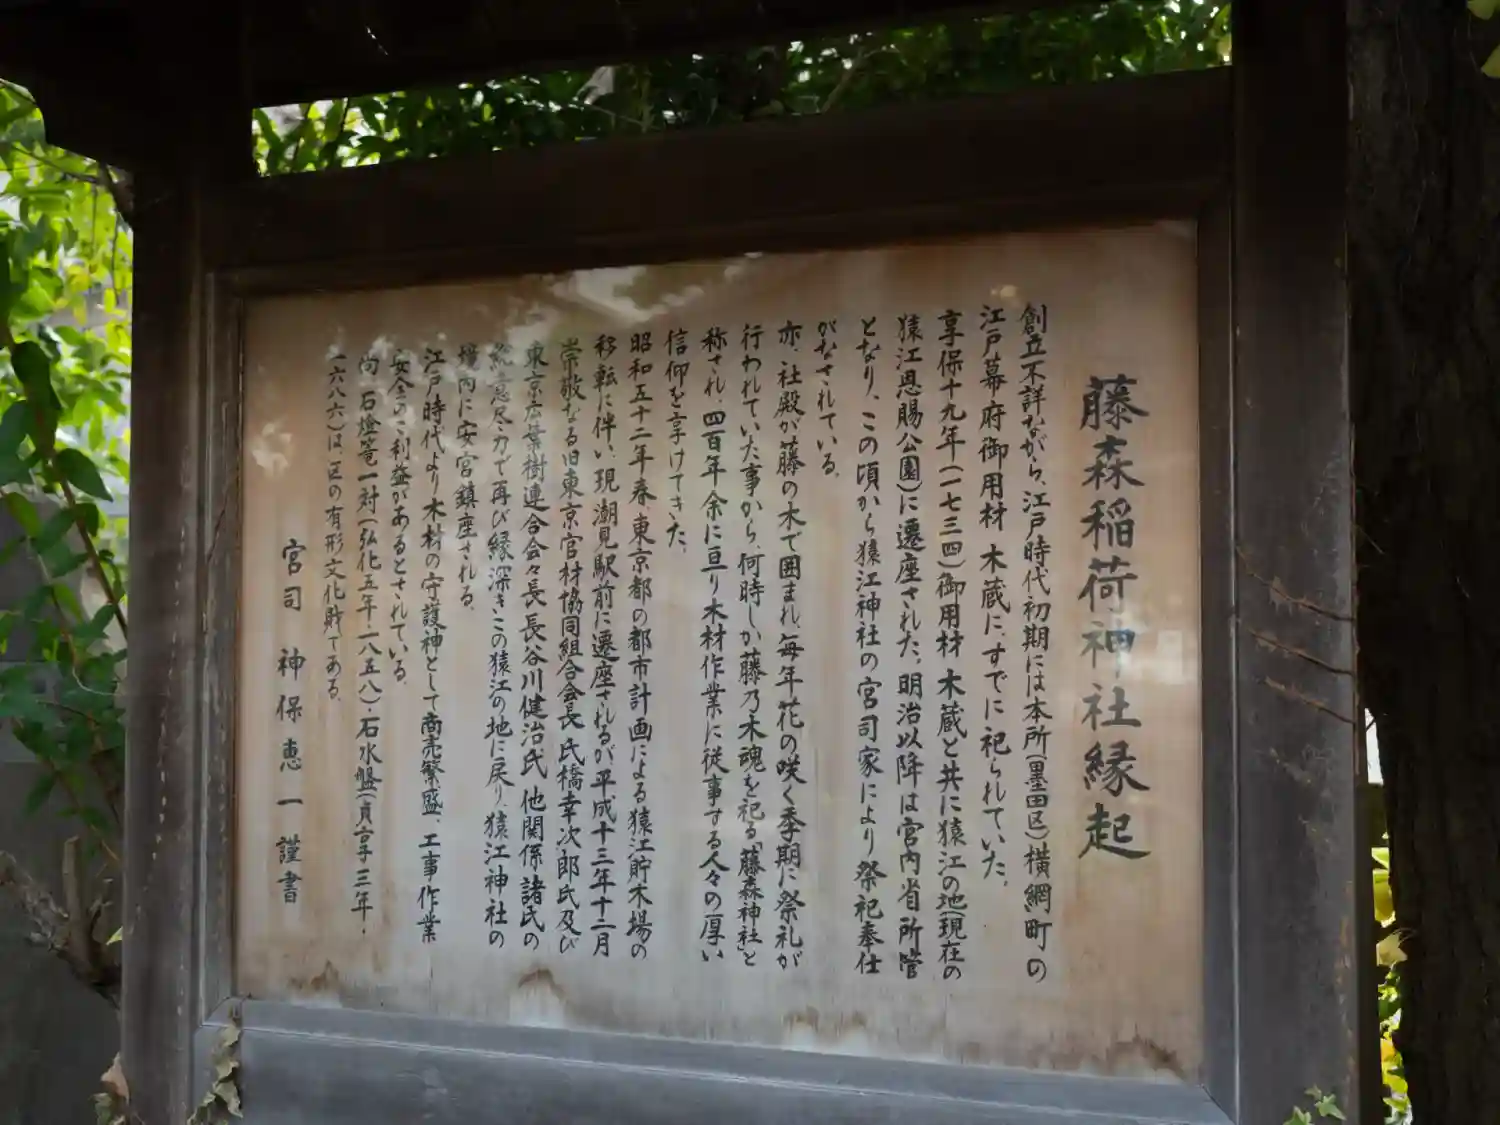 藤森稲荷神社縁起
創立不詳ながら、江戸時代初期には本所(墨田区)横綱町の
江戸幕府御用材木蔵に、すでに祀られていた。
享保十九年(一七三四)御用材木蔵と共に猿江の地(現在の
猿江恩賜公園)に遷座された。明治以降は宮内省所管
となり、この頃から猿江神社の宮司家により祭祀奉仕
がなされている。
亦、社殿が藤の木で囲まれ、毎年花の咲く季期に祭礼が
行われていた事から、何時しか藤乃木魂を祀る「藤森神社」と
称され、四百年余に亘り木材作業に従事する人々の厚い
信仰を享けてきた。
昭和五十二年春、東京都の都市計画による猿江貯木場の
移転に伴い、現潮見駅前に遷座されるが平成十三年十二月
崇敬なる旧東京官材協同組合会長氏橋幸次郎氏及び
東京広葉樹連合会々長長谷川健治氏他関係諸氏の
総意尽力で再び縁深きこの猿江の地に戻り、猿江神社の
境内に安宮鎮座される。
江戸時代より木材の守護神として商売繁盛、工事作業
安全のご利益があるとされている。
尚石燈篭一対(弘化五年・一八五八)・石水盤(貞享三年・
一六八六)は、区の有形文化財である。
宮司 神保恵一謹書